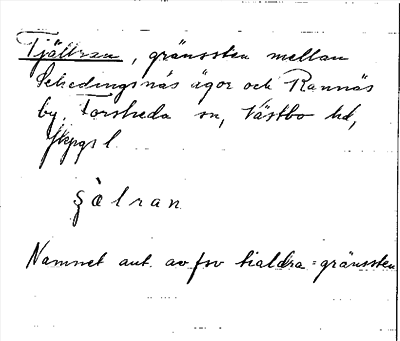 Tjällran, gränssten mellan
Schedingsnäs ägor och Rannäs
by. Forsheda sn, Västbo hd,
Jkpgs l
ȿàlran
Namnet ant. av fsv tialdra = gränssten